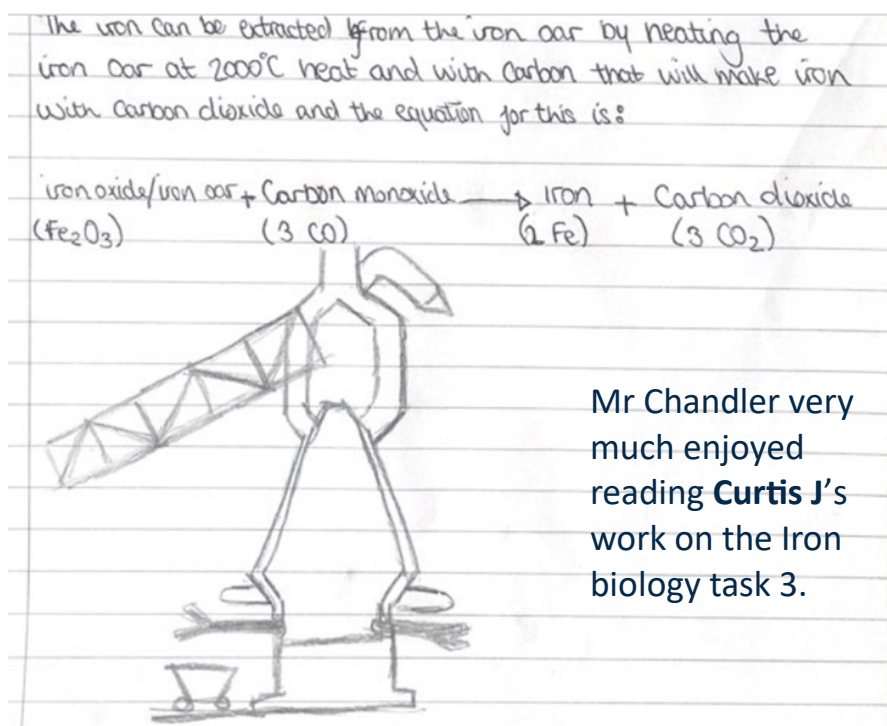 The iron can be extracted from the iron oar by heating the
iron oar at 2000°C heat and with Carbon that will make iron
with Carbon dioxide and the equation for this is:
iron oxide/iron oar + Carbon monoxide → Iron + Carbon dioxide
(Fe₂O₃) (3 CO) (2 Fe) (3 CO₂)
Mr Chandler very
much enjoyed
reading Curtis J's
work on the Iron
biology task 3.